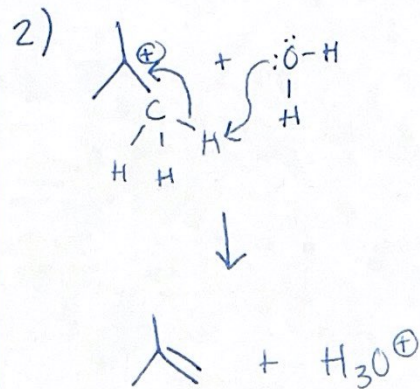 2)
⊕ + :Ö-H
C H
H H H
+ H₃O⊕